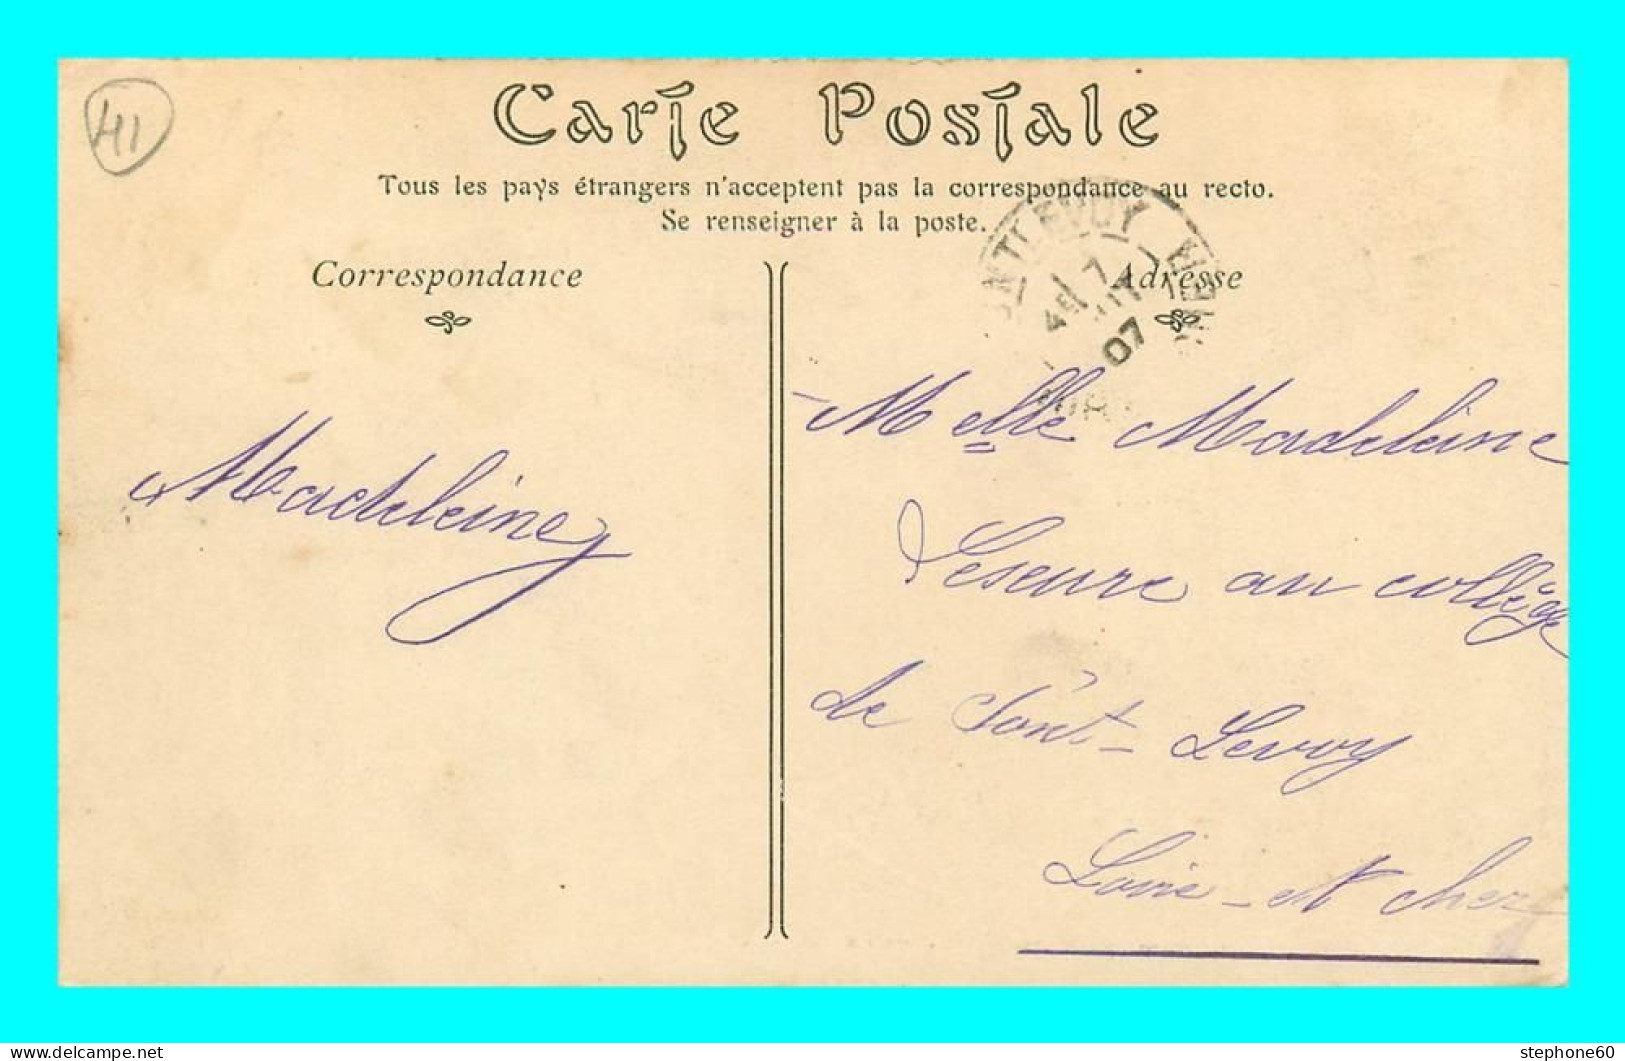 41
Carte Postale
Tous les pays étrangers n'acceptent pas la correspondance au recto.
Se renseigner à la poste.
Correspondance
Adresse
NTLEVOY
7
07
Madeleine
Melle Madeleine
Leseure au collège
de Pont-Levoy
Loire-et Cher
www.delcampe.net
stephone60